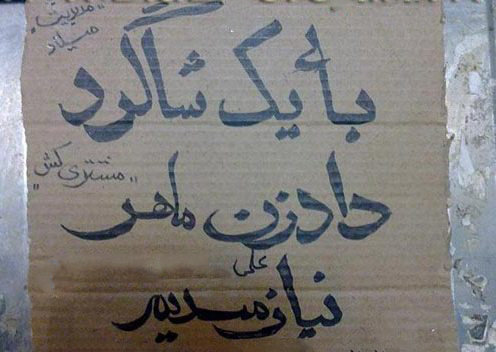 "مدیریت"
میلاد
بائے یک شاگرد
"مشتری کش"
دادزن ماهر
نیازمدیم